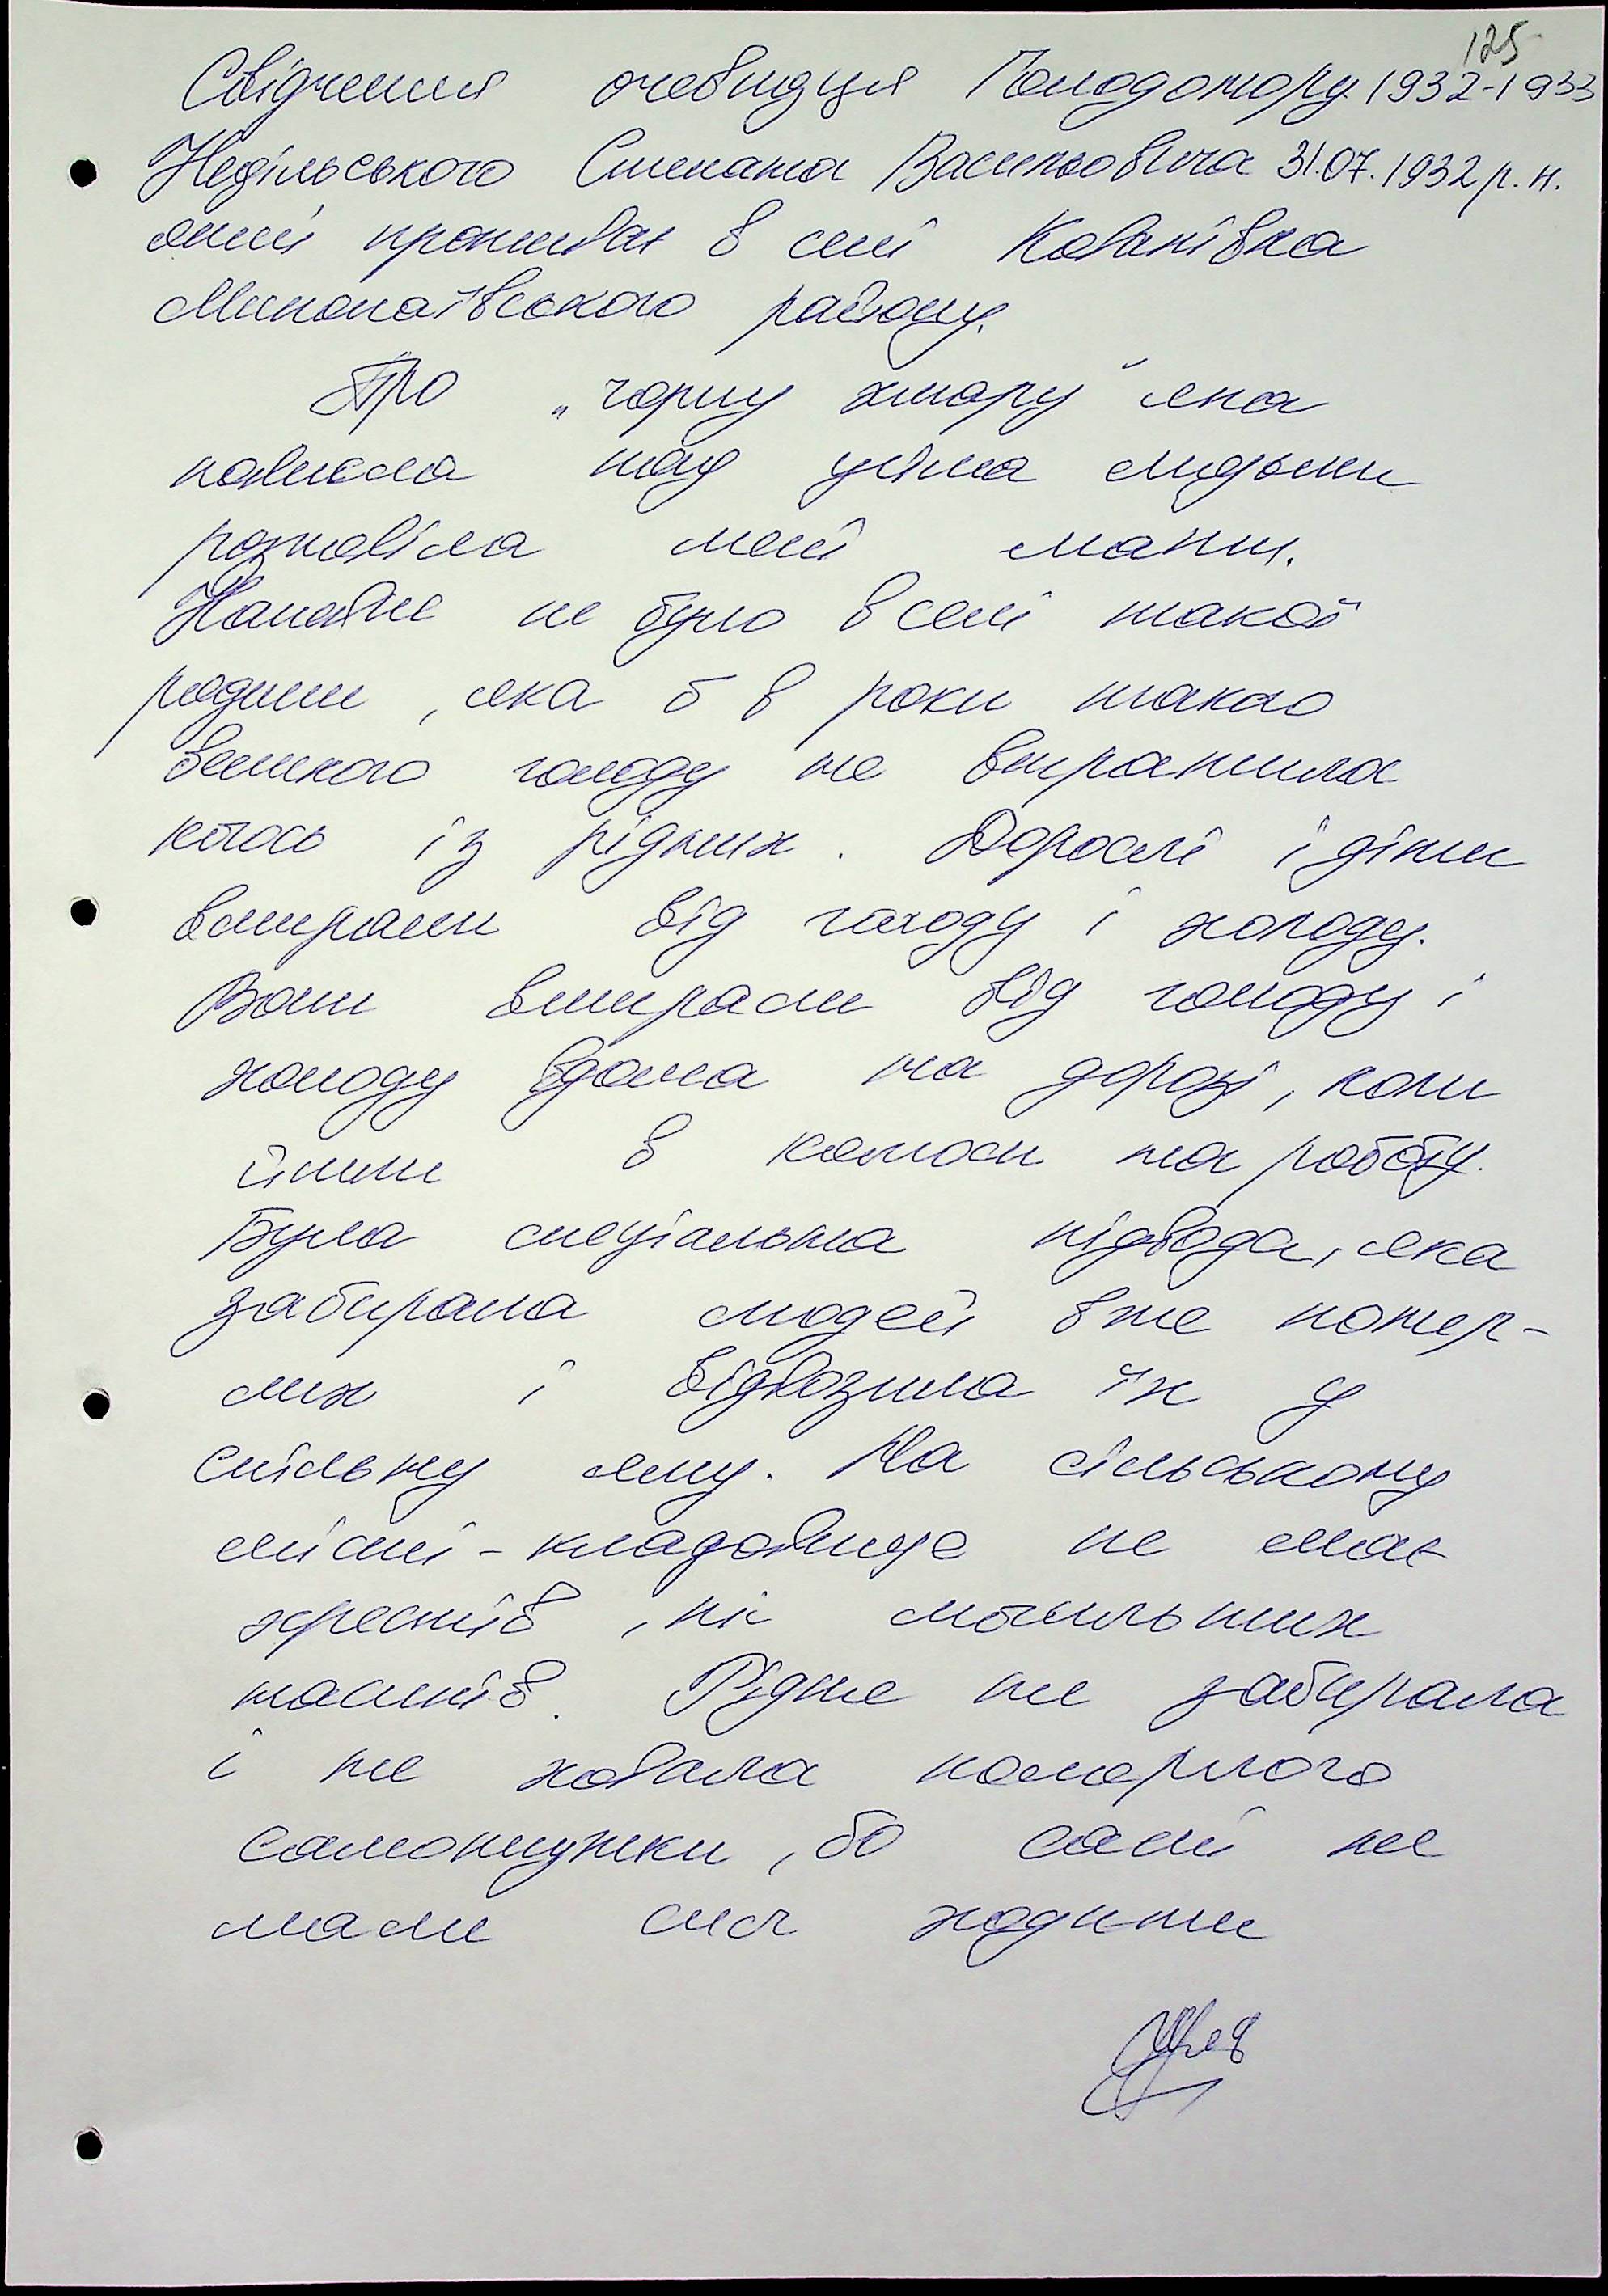 125
Свідчення очевидця Голодомору 1932-1933
Недільського Степана Васильовича 31.07.1932 р.н.
який проживає в селі Кованівка
Миколаївського району.
Про „чорну хмару" яка
нависла над усіма людьми
розповіла мені мати.
Напевне не було в селі такої
родини, яка б в роки такого
великого голоду не втратила
когось із рідних. Дорослі і діти
вмирали від голоду і холоду.
Вони вмирали від голоду і
холоду вдома на дорозі, коли
йшли в колгосп на роботу.
Була спеціальна підвода, яка
забирала людей вже помер-
лих і відвозила їх у
спільну яму. На сільському
місці - кладовище не має
хрестів, ні могильних
таблиць. Рідне не забирала
і не ховала померлого
самотужки, бо самі не
мали сил ходити